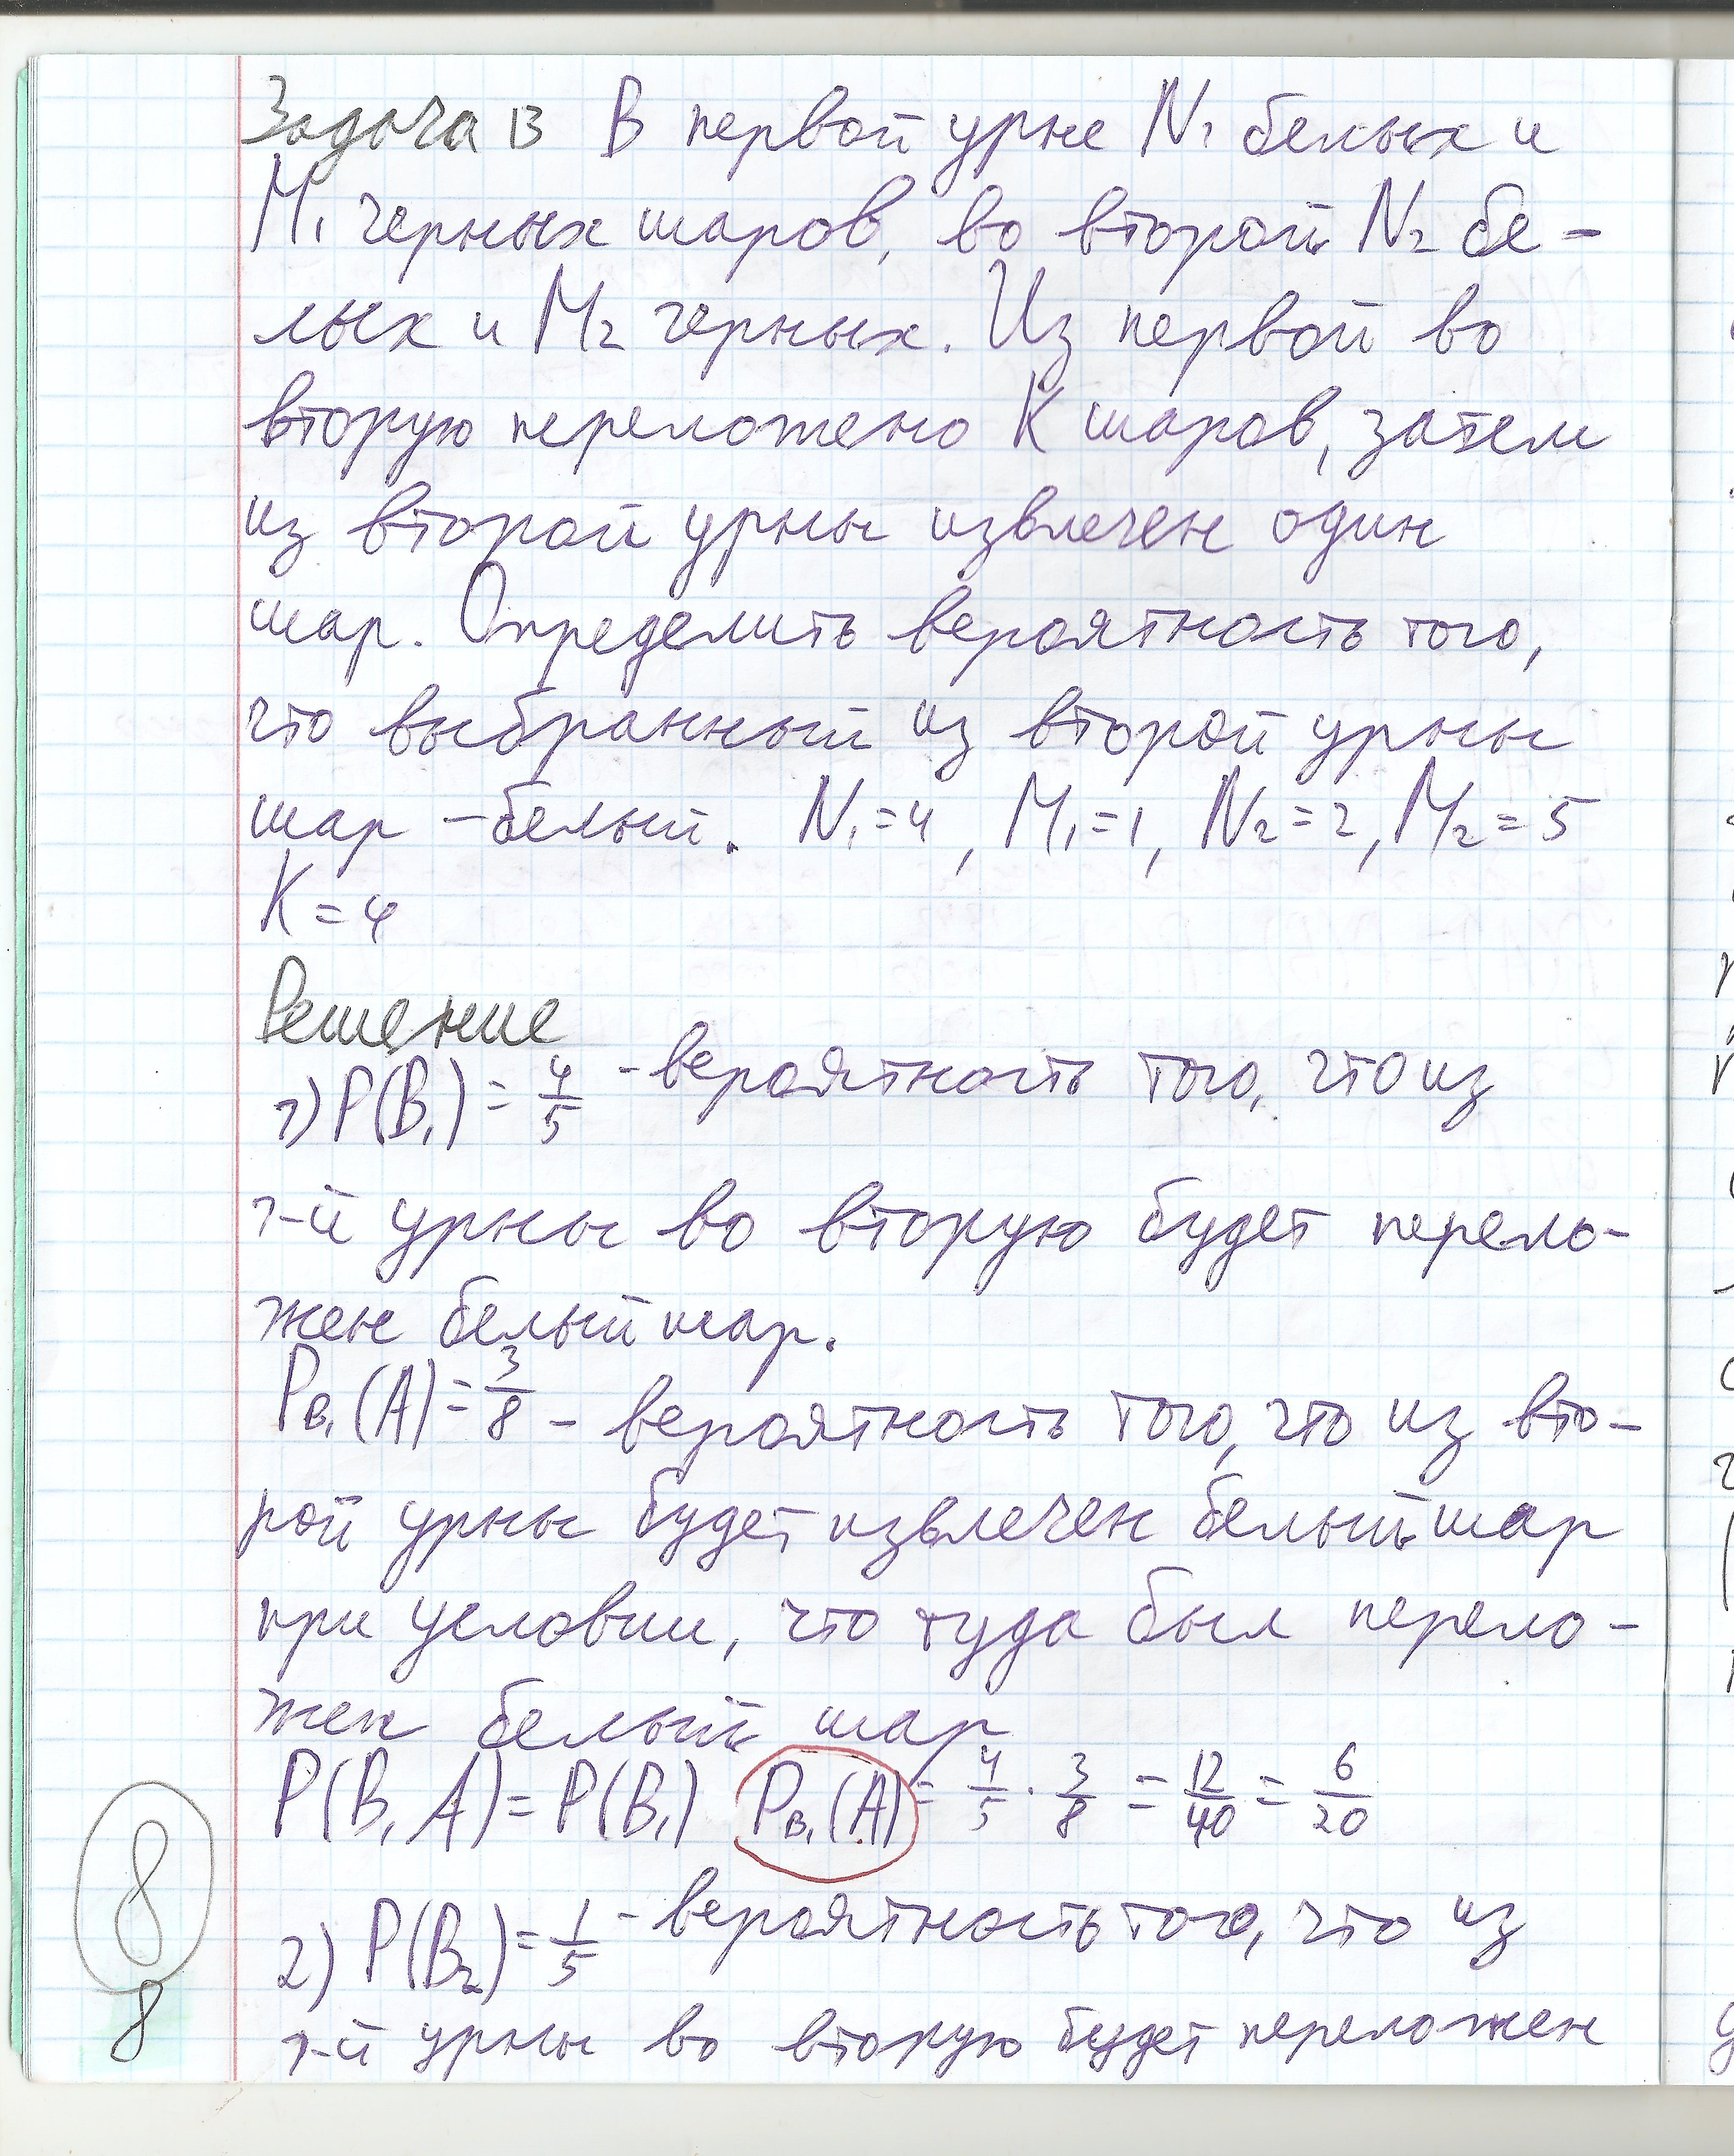 Задача 13 В первой урне N₁ белых и
M₁ черных шаров, во второй N₂ бе-
лых и M₂ черных. Из первой во
вторую переложено K шаров, затем
из второй урны извлечен один
шар. Определить вероятность того,
что выбранный из второй урны
шар - белый. N₁=4, M₁=1, N₂=2, M₂=5
K=4
Решение
1) P(B₁) = 4/5 - вероятность того, что из
1-й урны во вторую будет перело-
жен белый шар.
P_B₁(A) = 3/8 - вероятность того, что из вто-
рой урны будет извлечен белый шар
при условии, что туда был перело-
жен белый шар
P(B₁A) = P(B₁) P_B₁(A) = 4/5 · 3/8 = 12/40 = 6/20
2) P(B₂) = 1/5 - вероятность того, что из
1-й урны во вторую будет переложен
8
8